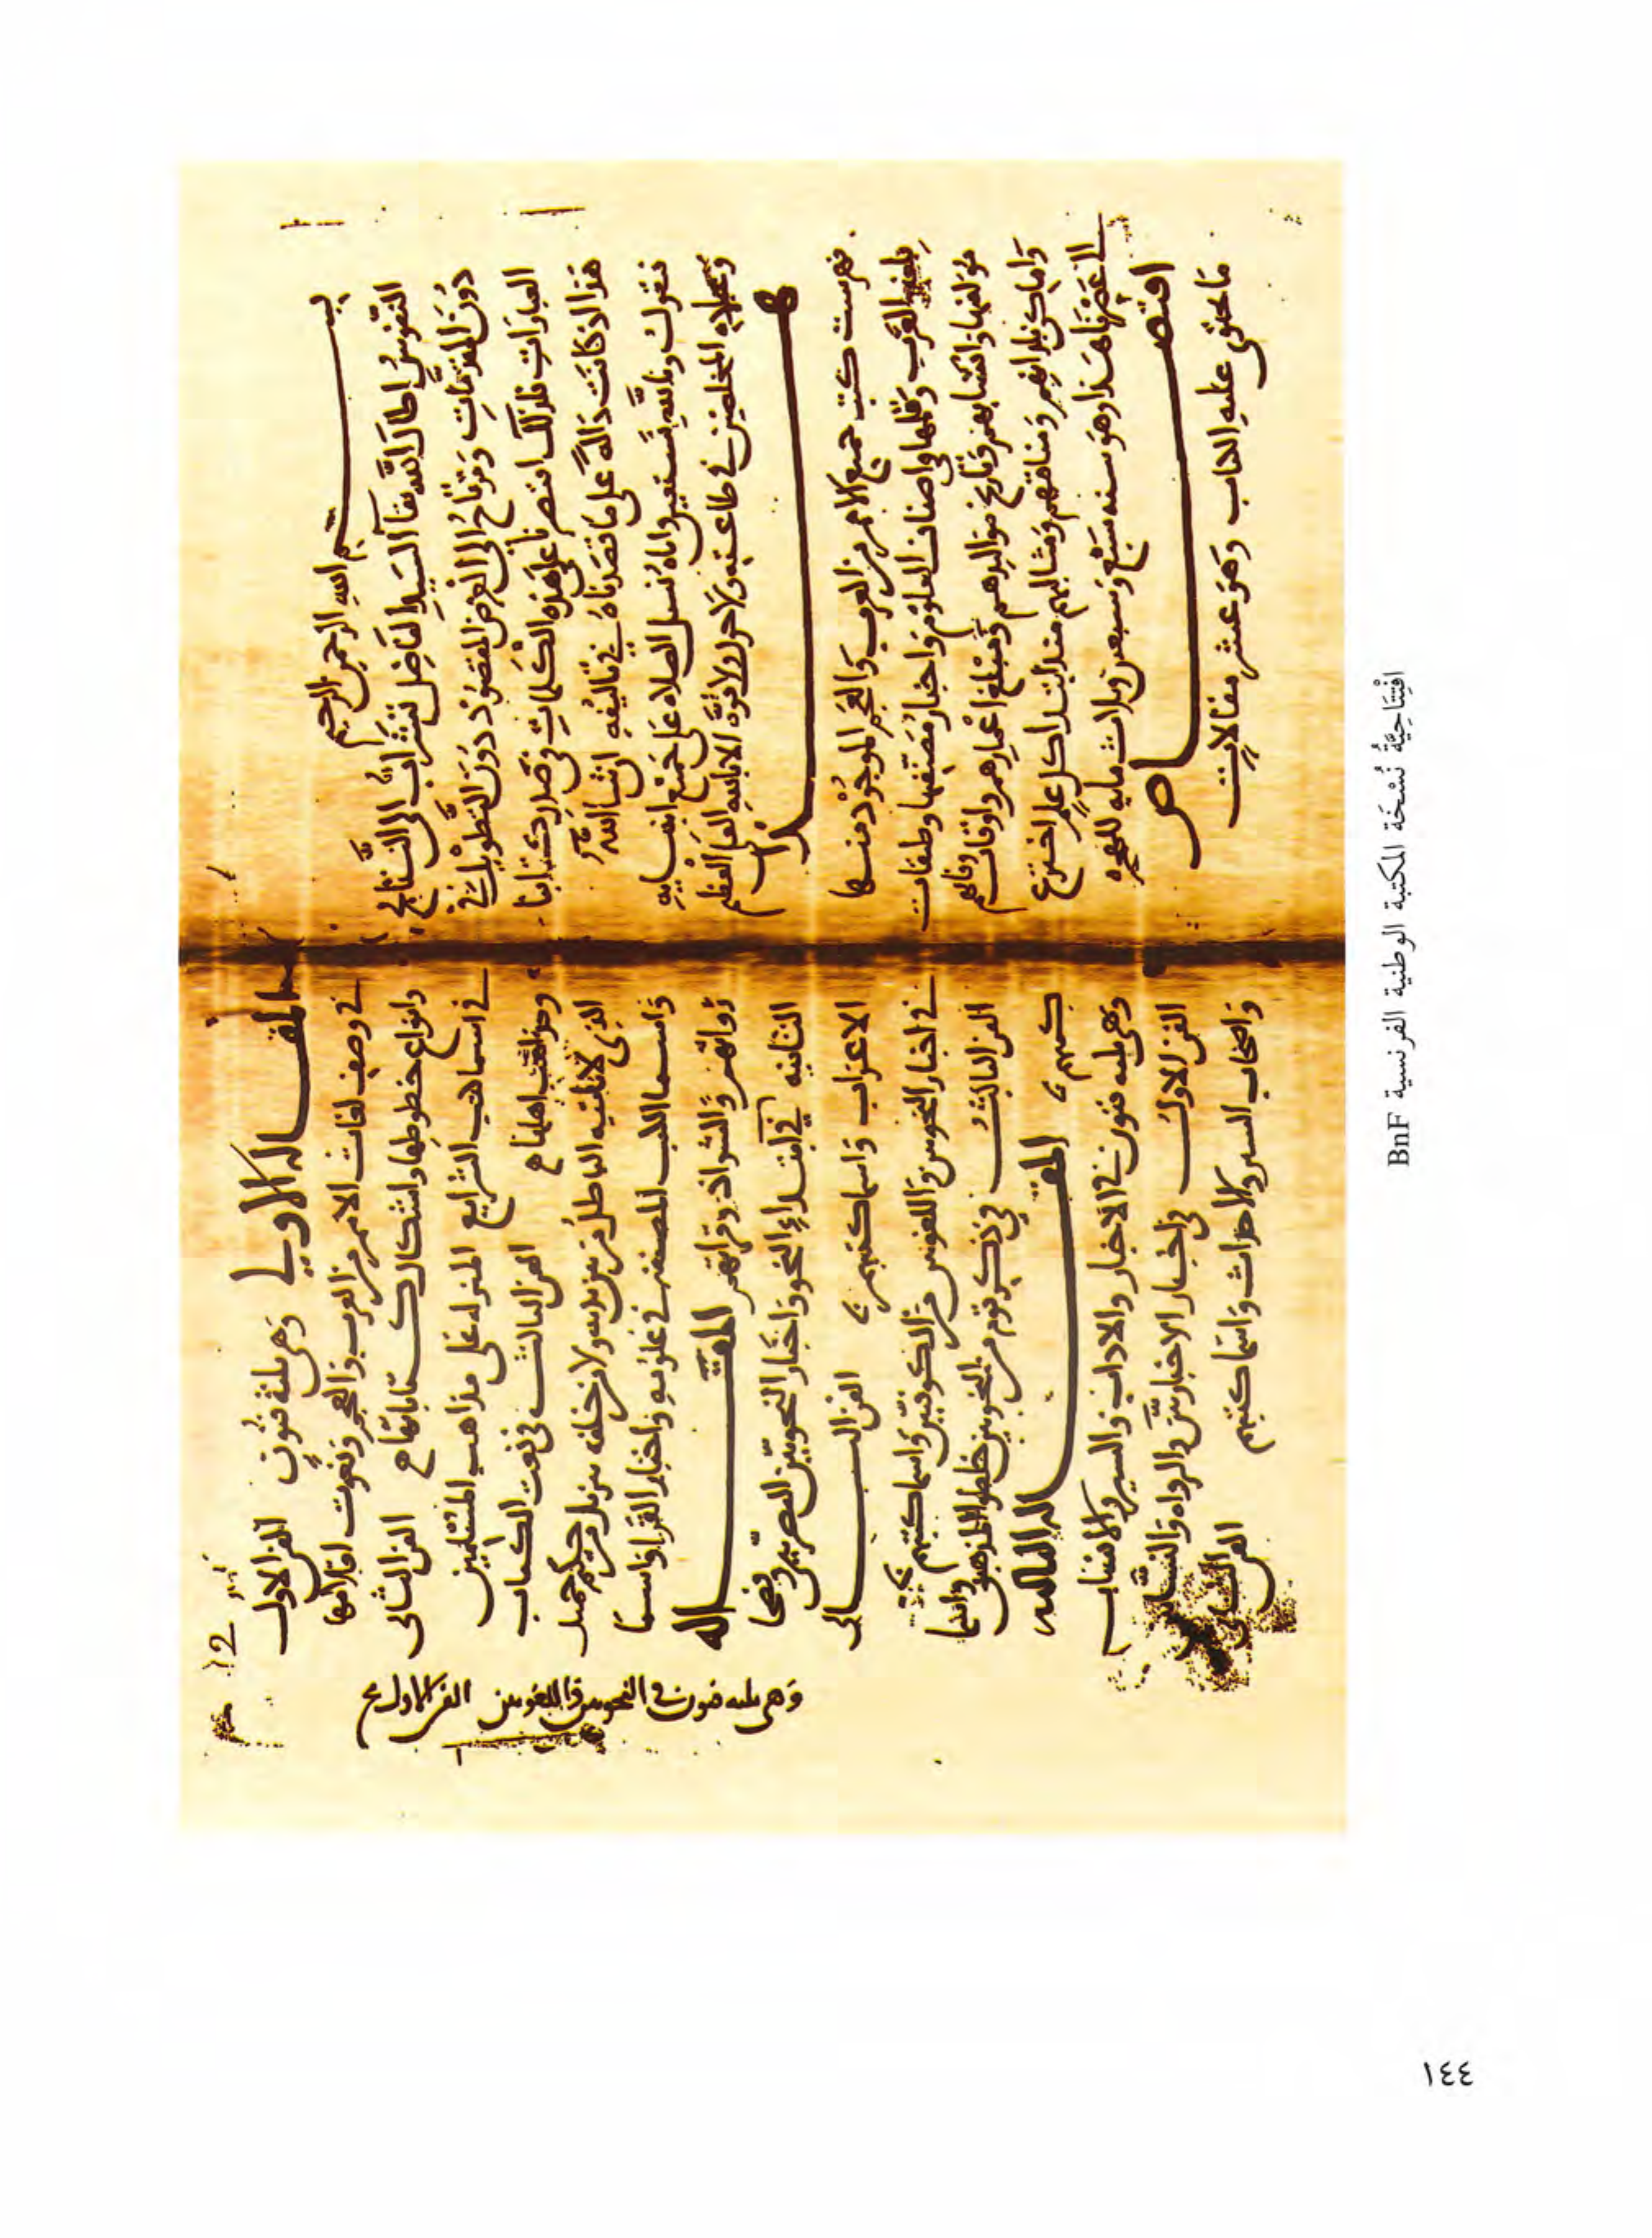 بسم الله الرحمن الرحيم
النفوسُ اطال اللّه بقا السيد الفاضل تشرأبُّ الى النتايج
دون المقدمات وترتاح الى الغرض المقصود دون التطويل في
العبارات فلذلك اقتصرنا على هذه الكلمات في صدر كتابنا
هذا اذ كانت دالة على ما قصدناه في تاليفه ان شا الله
فنقول وبالله نستعين واياه نسل الصلاه على جميع انبيايه
وعباده المخلصين في طاعته ولا حول ولا قوة الا بالله العلي العظيم
هذا
فهرست كتب جميع الامم من العرب والعجم الموجود منها
بلغة العرب وقلمها في اصناف العلوم واخبار مصنفيها وطبقات
مؤلفيها وانسابهم وتاريخ مواليدهم ومبلغ اعمارهم واوقات وفاتهم
واماكن بلدانهم ومناقبهم ومثالبهم منذ ابتدا كل علم اخترع
الى عصرنا هذا وهو سنه سبع وسبعين وثلاث مايه للهجره
اقتصاص
ما يحتوي عليه الكتاب وهو عشر مقالات
12
المقاله الاولى وهي ثلثة فنون الفن الاول
في وصف لغات الامم من العرب والعجم ونعوت اقلامها
وانواع خطوطها واشكال كتاباتها الفن الثاني
في اسما كتب الشرايع المنزله على مذاهب المسلمين
ومذاهب اهلها الفن الثالث في نعت الكتاب
الذي لا ياتيه الباطل من بين يديه ولا من خلفه تنزيل من حكيم حميد
واسما الكتب المصنفه في علومه واخبار القرا واسما
رواتهم والشواذ من قراتهم المقاله
الثانيه في ابتداء النحو واخبار النحويين البصريين وفصحا
الاعراب واسما كتبهم الفن الثاني
في اخبار النحويين واللغويين من الكوفيين واسما كتبهم
الفن الثالث في ذكر قوم من النحويين خلطوا المذهبين واسما
كتبهم المقاله الثالثه
وهي ثلثه فنون في الاخبار والاداب والسير والانساب
الفن الاول في اخبار الاخباريين والرواه والنسابين
واصحاب السير والاحداث واسما كتبهم الفن الثاني
وهي ثلثه فنون في النحويين واللغويين الفن الاول
افْتِتَاحِيَّةُ نُسْخَة المكتبة الوطنية الفرنسية BnF
١٤٤